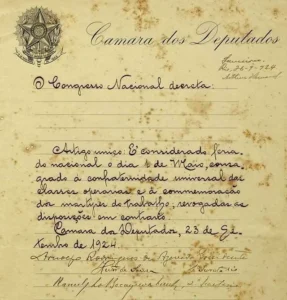 Camara dos Deputados
O Congresso Nacional decreta:
Artigo unico. É considerado feria-
do nacional o dia 1 de Maio, consa-
grado á confraternidade universal das
classes operarias e á commemoração
dos martyres do trabalho; revogadas as
disposições em contrario.
Camara dos Deputados, 23 de Se-
tembro de 1924